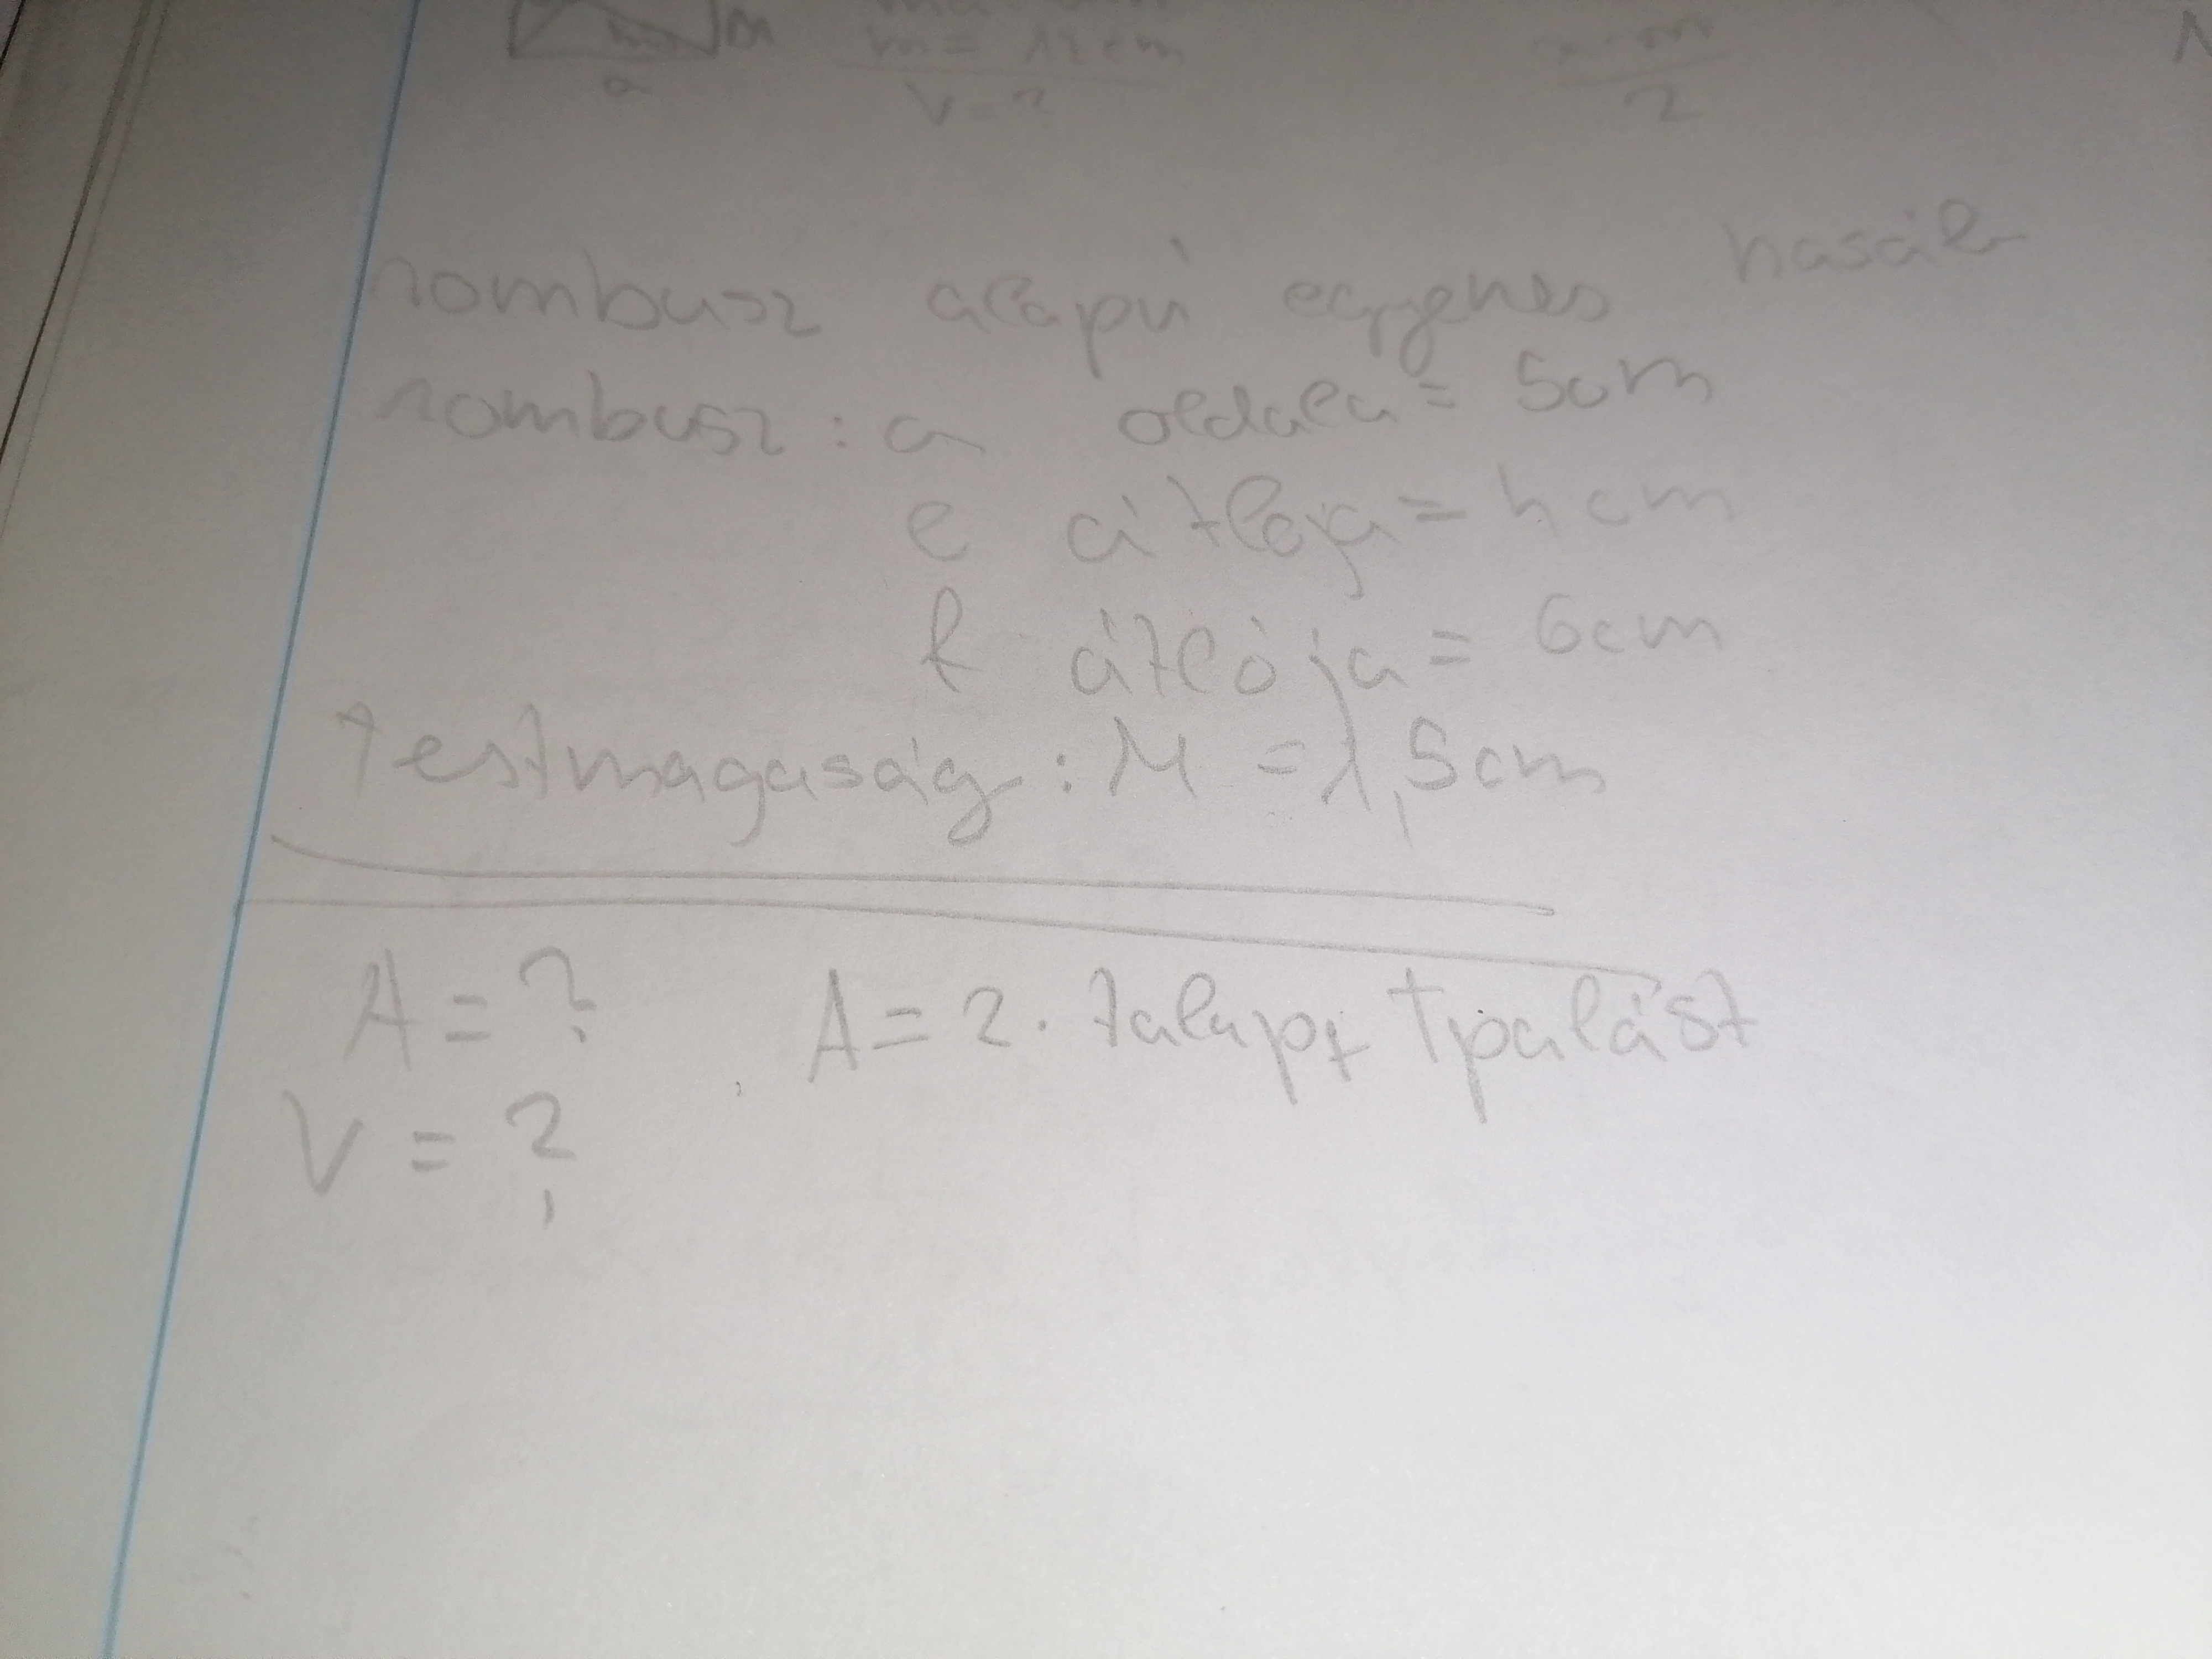 a
m
m = 12 cm
V = ?
2
rombusz alapú egyenes hasáb
rombusz: a oldala = 5cm
e átlója = 4 cm
f átlója = 6cm
testmagaság: M = 1,5cm
A = ? A = 2 · talap+ Tpalást
V = ?